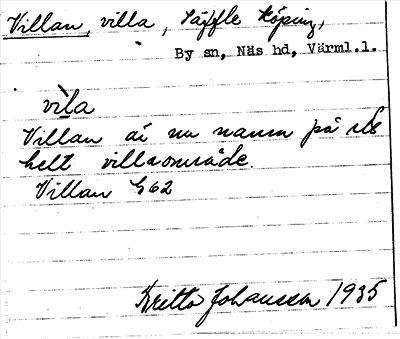 Villan, villa, Säffle köping,
By sn, Näs hd, Värml.l.
vila
Villan är nu namn på
helt villaområde.
Villan G62
Britta Johansson 1935